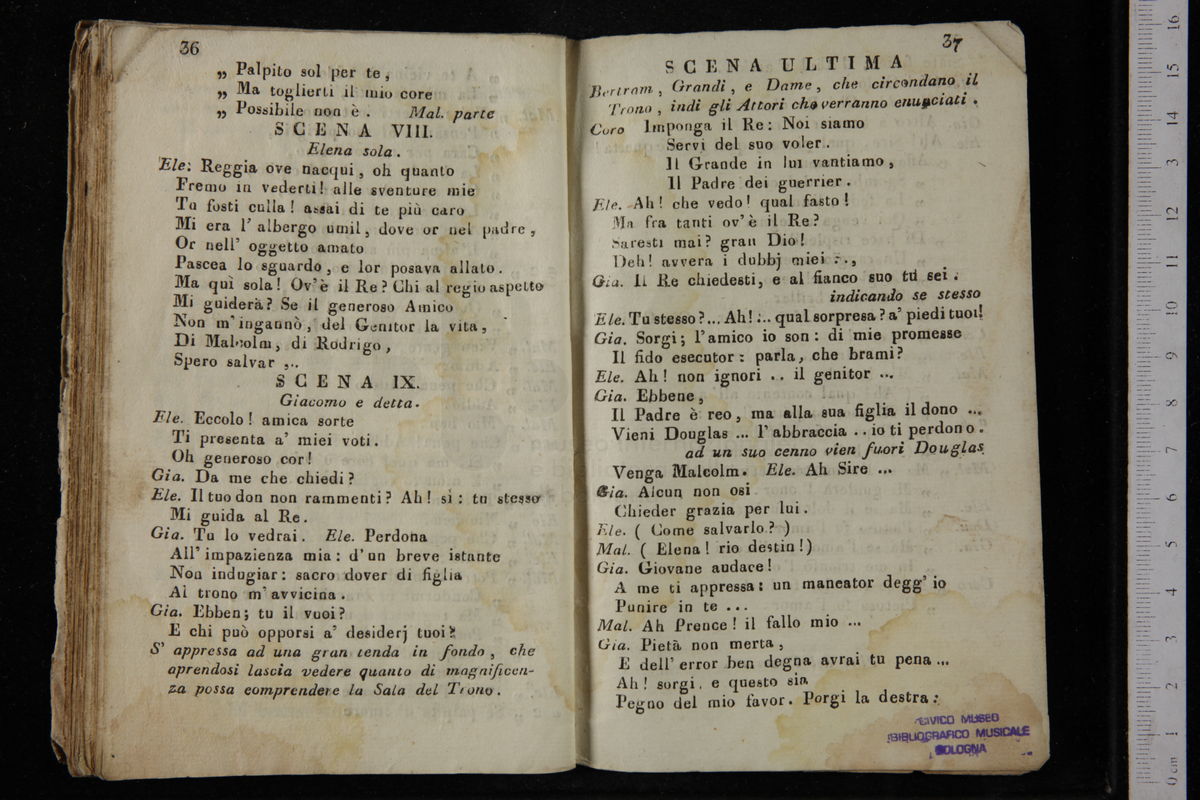 36
„ Palpito sol per te,
„ Ma toglierti il mio core
„ Possibile non è . Mal. parte
SCENA VIII.
Elena sola.
Ele: Reggia ove nacqui, oh quanto
Fremo in vederti! alle sventure mie
Tu fosti culla! assai di te più caro
Mi era l'albergo umil, dove or nel padre,
Or nell' oggetto amato
Pascea lo sguardo, e lor posava allato.
Ma qui sola! Ov'è il Re? Chi al regio aspetto
Mi guiderà? Se il generoso Amico
Non m'ingannò, del Genitor la vita,
Di Malcolm, di Rodrigo,
Spero salvar ,..
SCENA IX.
Giacomo e detta.
Ele. Eccolo! amica sorte
Ti presenta a' miei voti.
Oh generoso cor!
Gia. Da me che chiedi?
Ele. Il tuo don non rammenti? Ah! si: tu stesso
Mi guida al Re.
Gia. Tu lo vedrai. Ele. Perdona
All'impazienza mia: d'un breve istante
Non indugiar: sacro dover di figlia
Al trono m'avvicina.
Gia. Ebben; tu il vuoi?
E chi può opporsi a' desiderj tuoi?
S' appressa ad una gran tenda in fondo, che
aprendosi lascia vedere quanto di magnificen-
za possa comprendere la Sala del Trono.
37
SCENA ULTIMA
Bertram, Grandi, e Dame, che circondano il
Trono, indi gli Attori che verranno enunciati.
Coro Imponga il Re: Noi siamo
Servi del suo voler.
Il Grande in lui vantiamo,
Il Padre dei guerrier.
Ele. Ah! che vedo! qual fasto!
Ma fra tanti ov'è il Re?
Saresti mai? gran Dio!
Deh! avvera i dubbj miei :.,
Gia. Il Re chiedesti, e al fianco suo tu sei.
indicando se stesso
Ele. Tu stesso?... Ah! :.. qual sorpresa? a' piedi tuoi!
Gia. Sorgi; l'amico io son: di mie promesse
Il fido esecutor: parla, che brami?
Ele. Ah! non ignori .. il genitor ...
Gia. Ebbene,
Il Padre è reo, ma alla sua figlia il dono ...
Vieni Douglas ... l'abbraccia .. io ti perdono.
ad un suo cenno vien fuori Douglas
Venga Malcolm. Ele. Ah Sire ...
Gia. Alcun non osi
Chieder grazia per lui.
Ele. ( Come salvarlo? )
Mal. ( Elena! rio destin!)
Gia. Giovane audace!
A me ti appressa: un mancator degg' io
Punire in te ...
Mal. Ah Prence! il fallo mio ...
Gia. Pietà non merta,
E dell'error ben degna avrai tu pena ...
Ah! sorgi, e questo sia
Pegno del mio favor. Porgi la destra:
CIVICO MUSEO
BIBLIOGRAFICO MUSICALE
BOLOGNA
0 cm 1 2 3 4 5 6 7 8 9 10 11 12 13 14 15 16